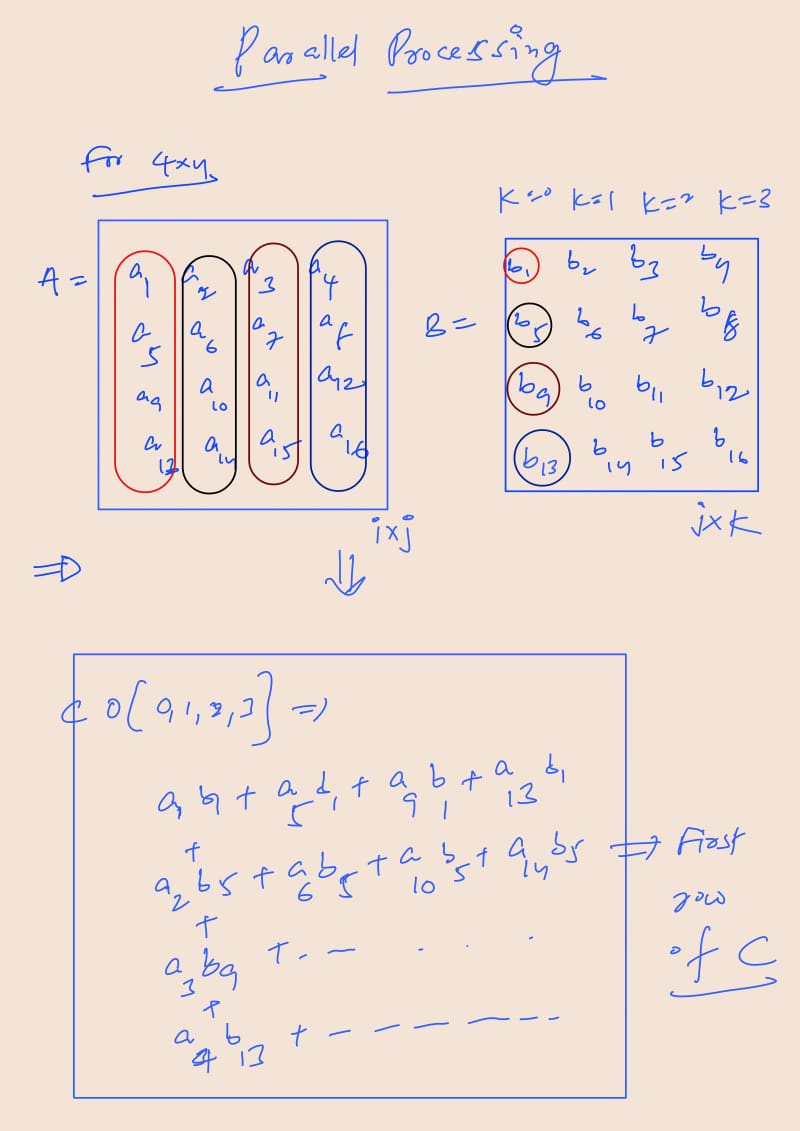 Parallel Processing
For 4x4
K=0 K=1 K=2 K=3
A =
a1 a2 a3 a4
a5 a6 a7 a8
a9 a10 a11 a12
a13 a14 a15 a16
ixj
B =
b1 b2 b3 b4
b5 b6 b7 b8
b9 b10 b11 b12
b13 b14 b15 b16
jxK
⇒ ⇓
C 0[0,1,2,3] ⇒
a1 b1 + a5 b1 + a9 b1 + a13 b1
+
a2 b5 + a6 b5 + a10 b5 + a14 b5 ⇒ First
row
of C
+
a3 b9 + . – . . .
+
a4 b13 + – – – – – –